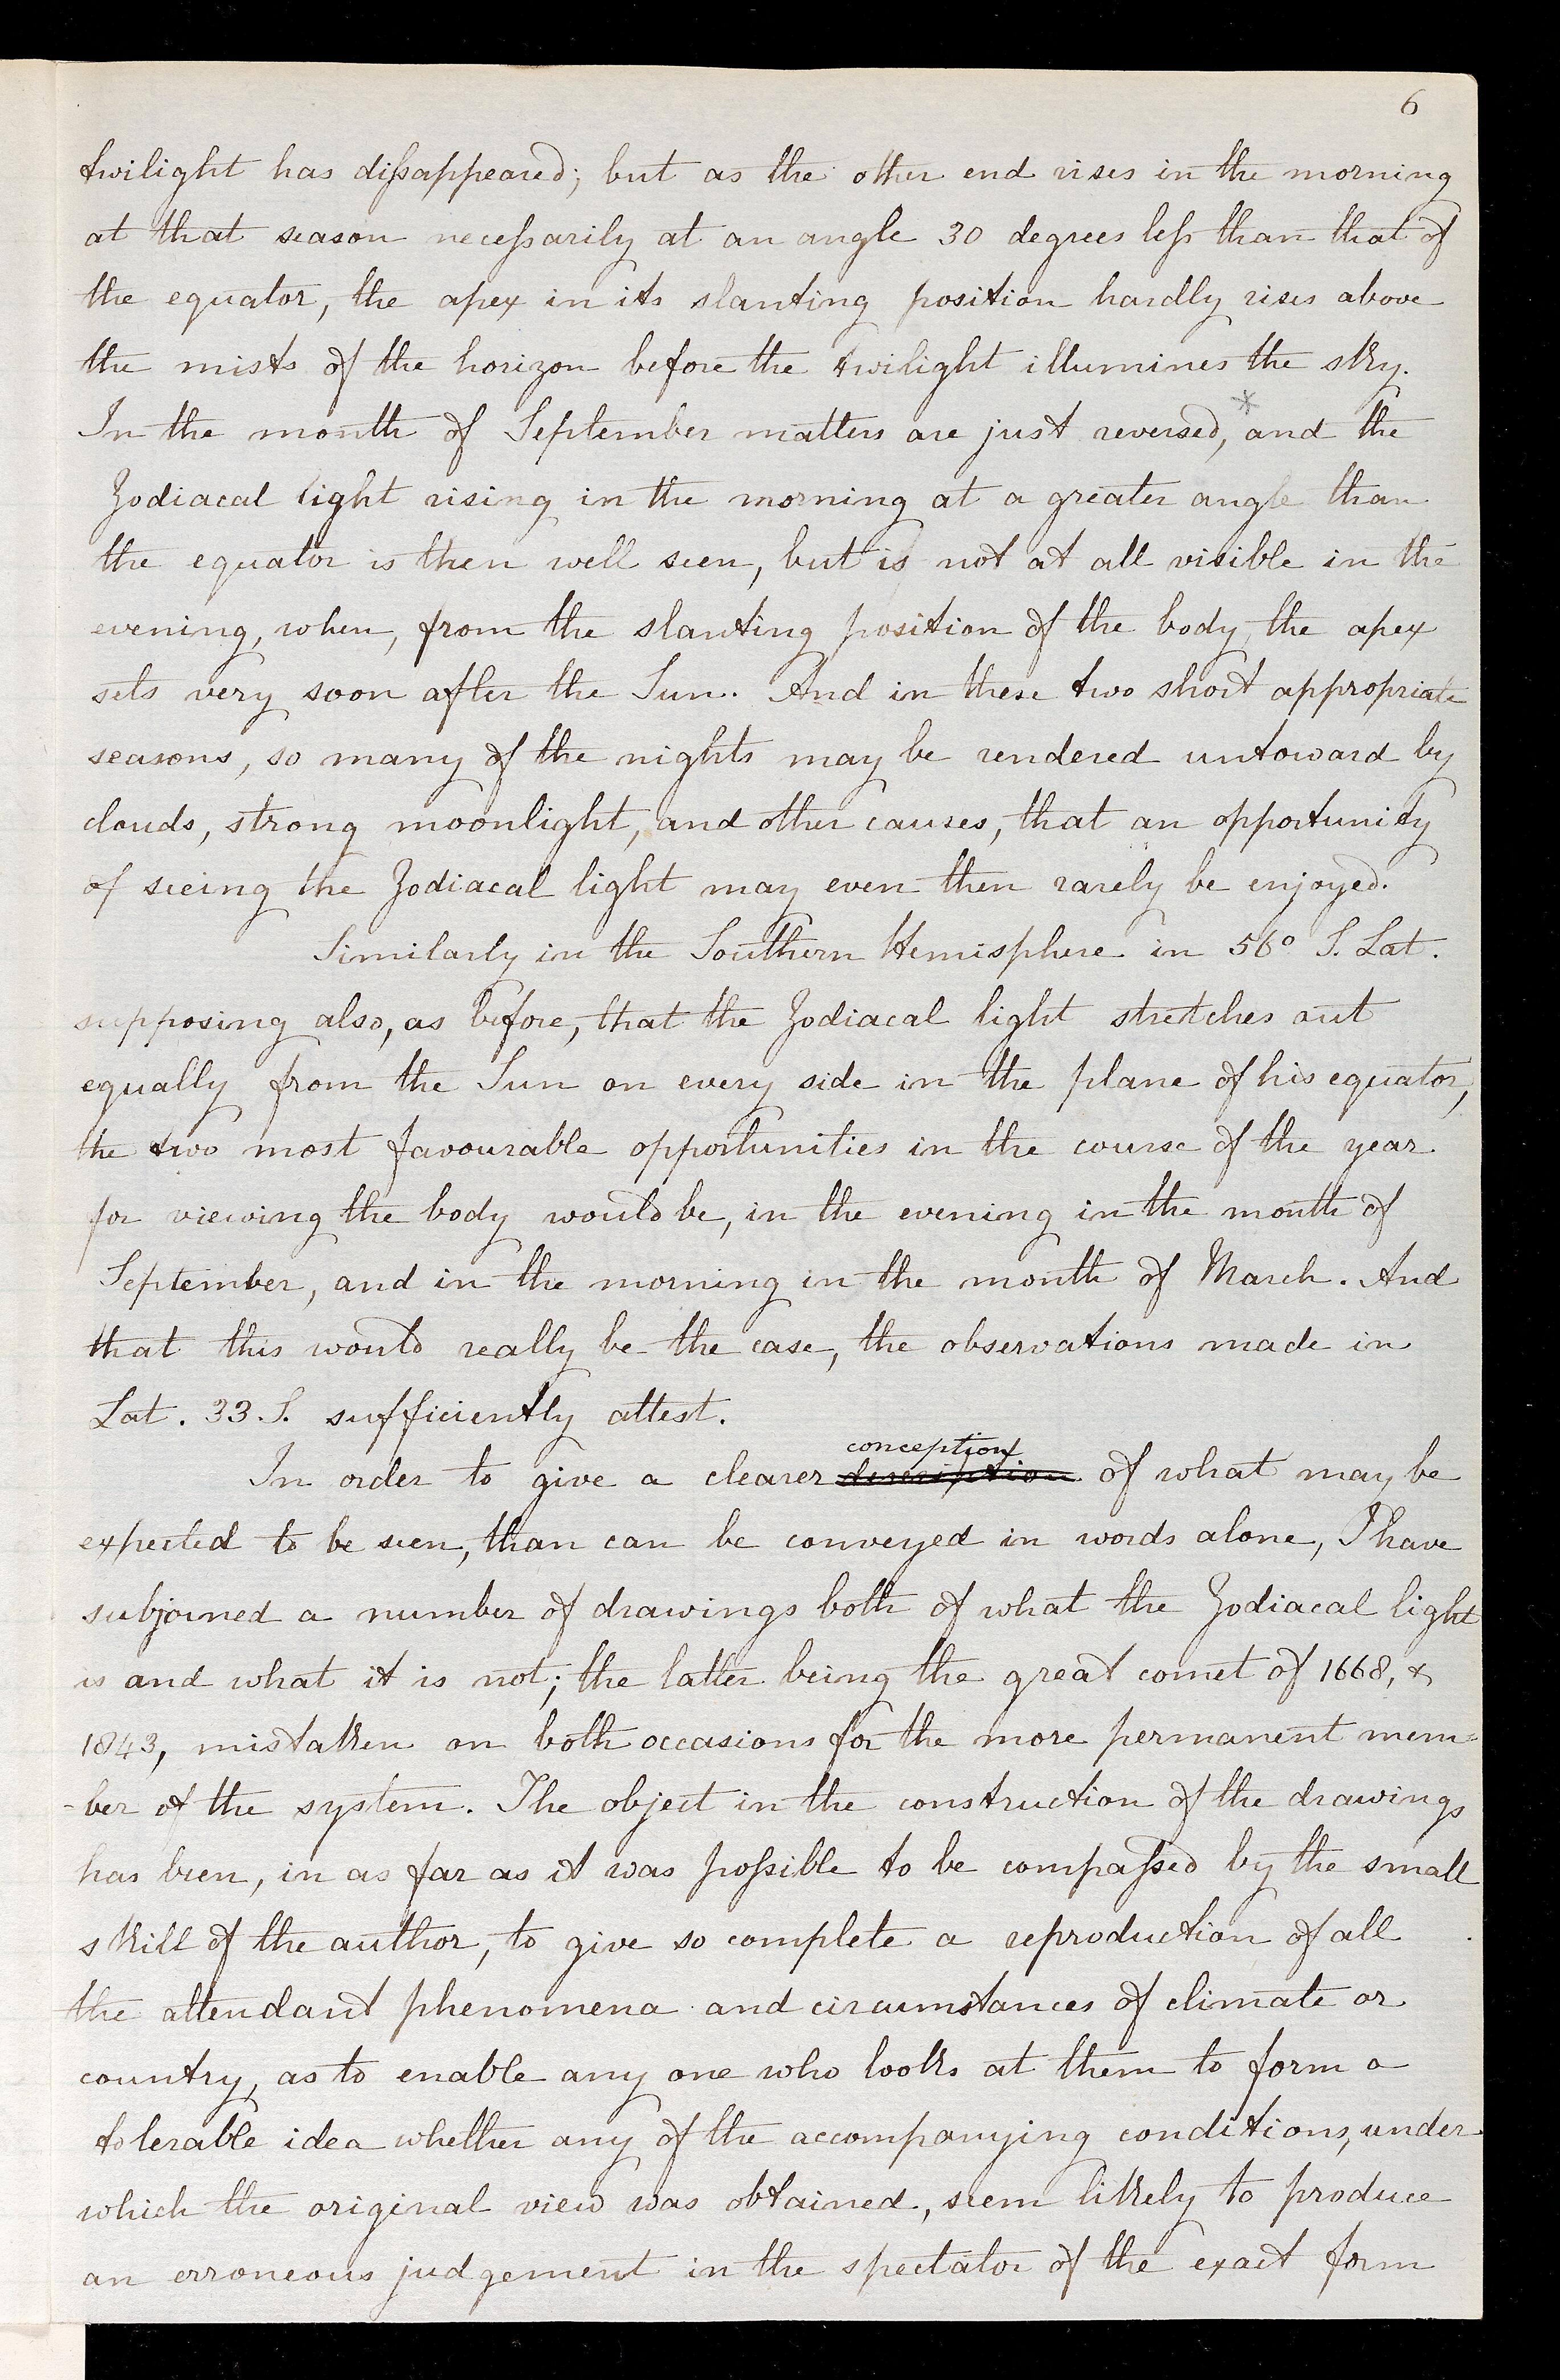 6
twilight has diſsappeared; but as the other end rises in the morning
at that season neceſsarily at an angle 30 degrees leſs than that of
the equator, the apex in its slanting position hardly rises above
the mists of the horizon before the twilight illumines the sky.
In the month of September matters are just reversed,* and the
Zodiacal light rising in the morning at a greater angle than
the equator is then well seen, but is not at all visible in the
evening, when, from the slanting position of the body, the apex
sets very soon after the Sun. And in these two short appropriate
seasons, so many of the nights may be rendered untoward by
clouds, strong moonlight, and other causes, that an opportunity
of seeing the Zodiacal light may even then rarely be enjoyed.
Similarly in the Southern Hemisphere in 56° S. Lat.
supposing also, as before, that the Zodiacal light stretches out
equally from the Sun on every side in the plane of his equator,
the two most favourable opportunities in the course of the year
for viewing the body would be, in the evening in the month of
September, and in the morning in the month of March. And
that this would really be the case, the observations made in
Lat. 33. S. sufficiently attest.
conception
In order to give a clearer description of what may be
expected to be seen, than can be conveyed in words alone, I have
subjoined a number of drawings both of what the Zodiacal light
is and what it is not; the latter being the great comet of 1668, &
1843, mistaken on both occasions for the more permanent mem=
-ber of the system. The object in the construction of the drawings
has been, in as far as it was poſsible to be compaſsed by the small
skill of the author, to give so complete a reproduction of all
the attendant phenomena and circumstances of climate or
country, as to enable any one who looks at them to form a
tolerable idea whether any of the accompanying conditions, under
which the original view was obtained, seem likely to produce
an erroneous judgement in the spectator of the exact form